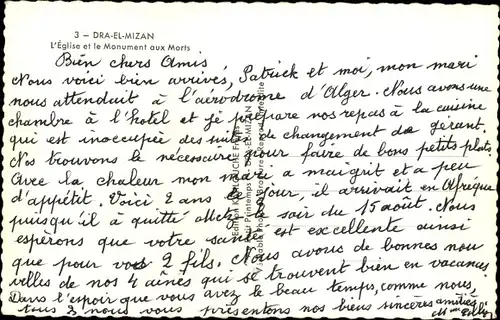 3 – DRA-EL-MIZAN
L'Église et le Monument aux Morts
Bien chers Amis
Nous voici bien arrivés, Patrick et moi, mon mari
nous attenduit à l'aérodrome d'Alger. Nous avons une
chambre à l'hotel et je prépare nos repas à la cuisine
qui est inoccupée des suites de changement de gérant.
Nos trouvons le nécessaire pour faire de bons petits plats.
Avec la chaleur mon mari a maigrit et a peu
d'appétit. Voici 2 ans ce jour, il arrivait en Afrique
puisqu'il à quitté Metz le soir du 15 août. Nous
esperons que votre santé est excellente ainsi
que pour vos 2 fils. Nous avons de bonnes nou
velles de nos 4 aînés qui se trouvent bien en vacances
Dans l'espoir que vous avez le beau temps, comme nous,
tous 3 nous vous présentons nos biens sincères amitiés